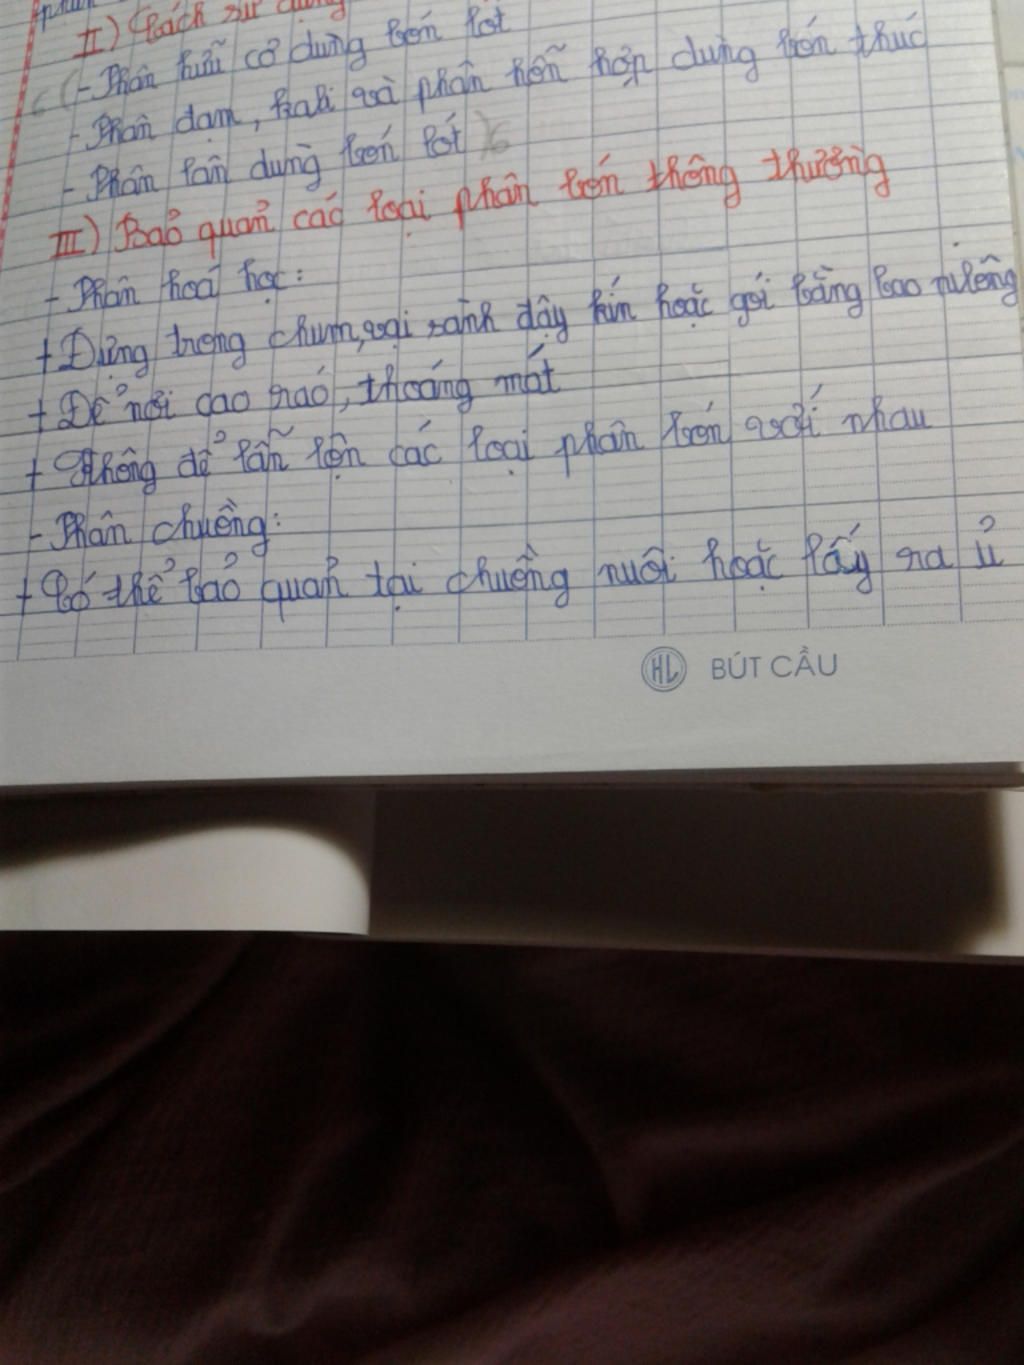 II) Cách sử dụng
- Phân hữu cơ dùng bón lót
- Phân đạm, kali và phân hỗn hợp dùng bón thúc
- Phân lân dùng bón lót
III) Bảo quản các loại phân bón thông thường
- Phân hoá học:
+ Đựng trong chum, vại sành đậy kín hoặc gói bằng bao nilông
+ Để nơi cao ráo, thoáng mát
+ Không để lẫn lộn các loại phân bón với nhau
- Phân chuồng:
+ Có thể bảo quản tại chuồng nuôi hoặc lấy ra ủ
HL BÚT CẦU